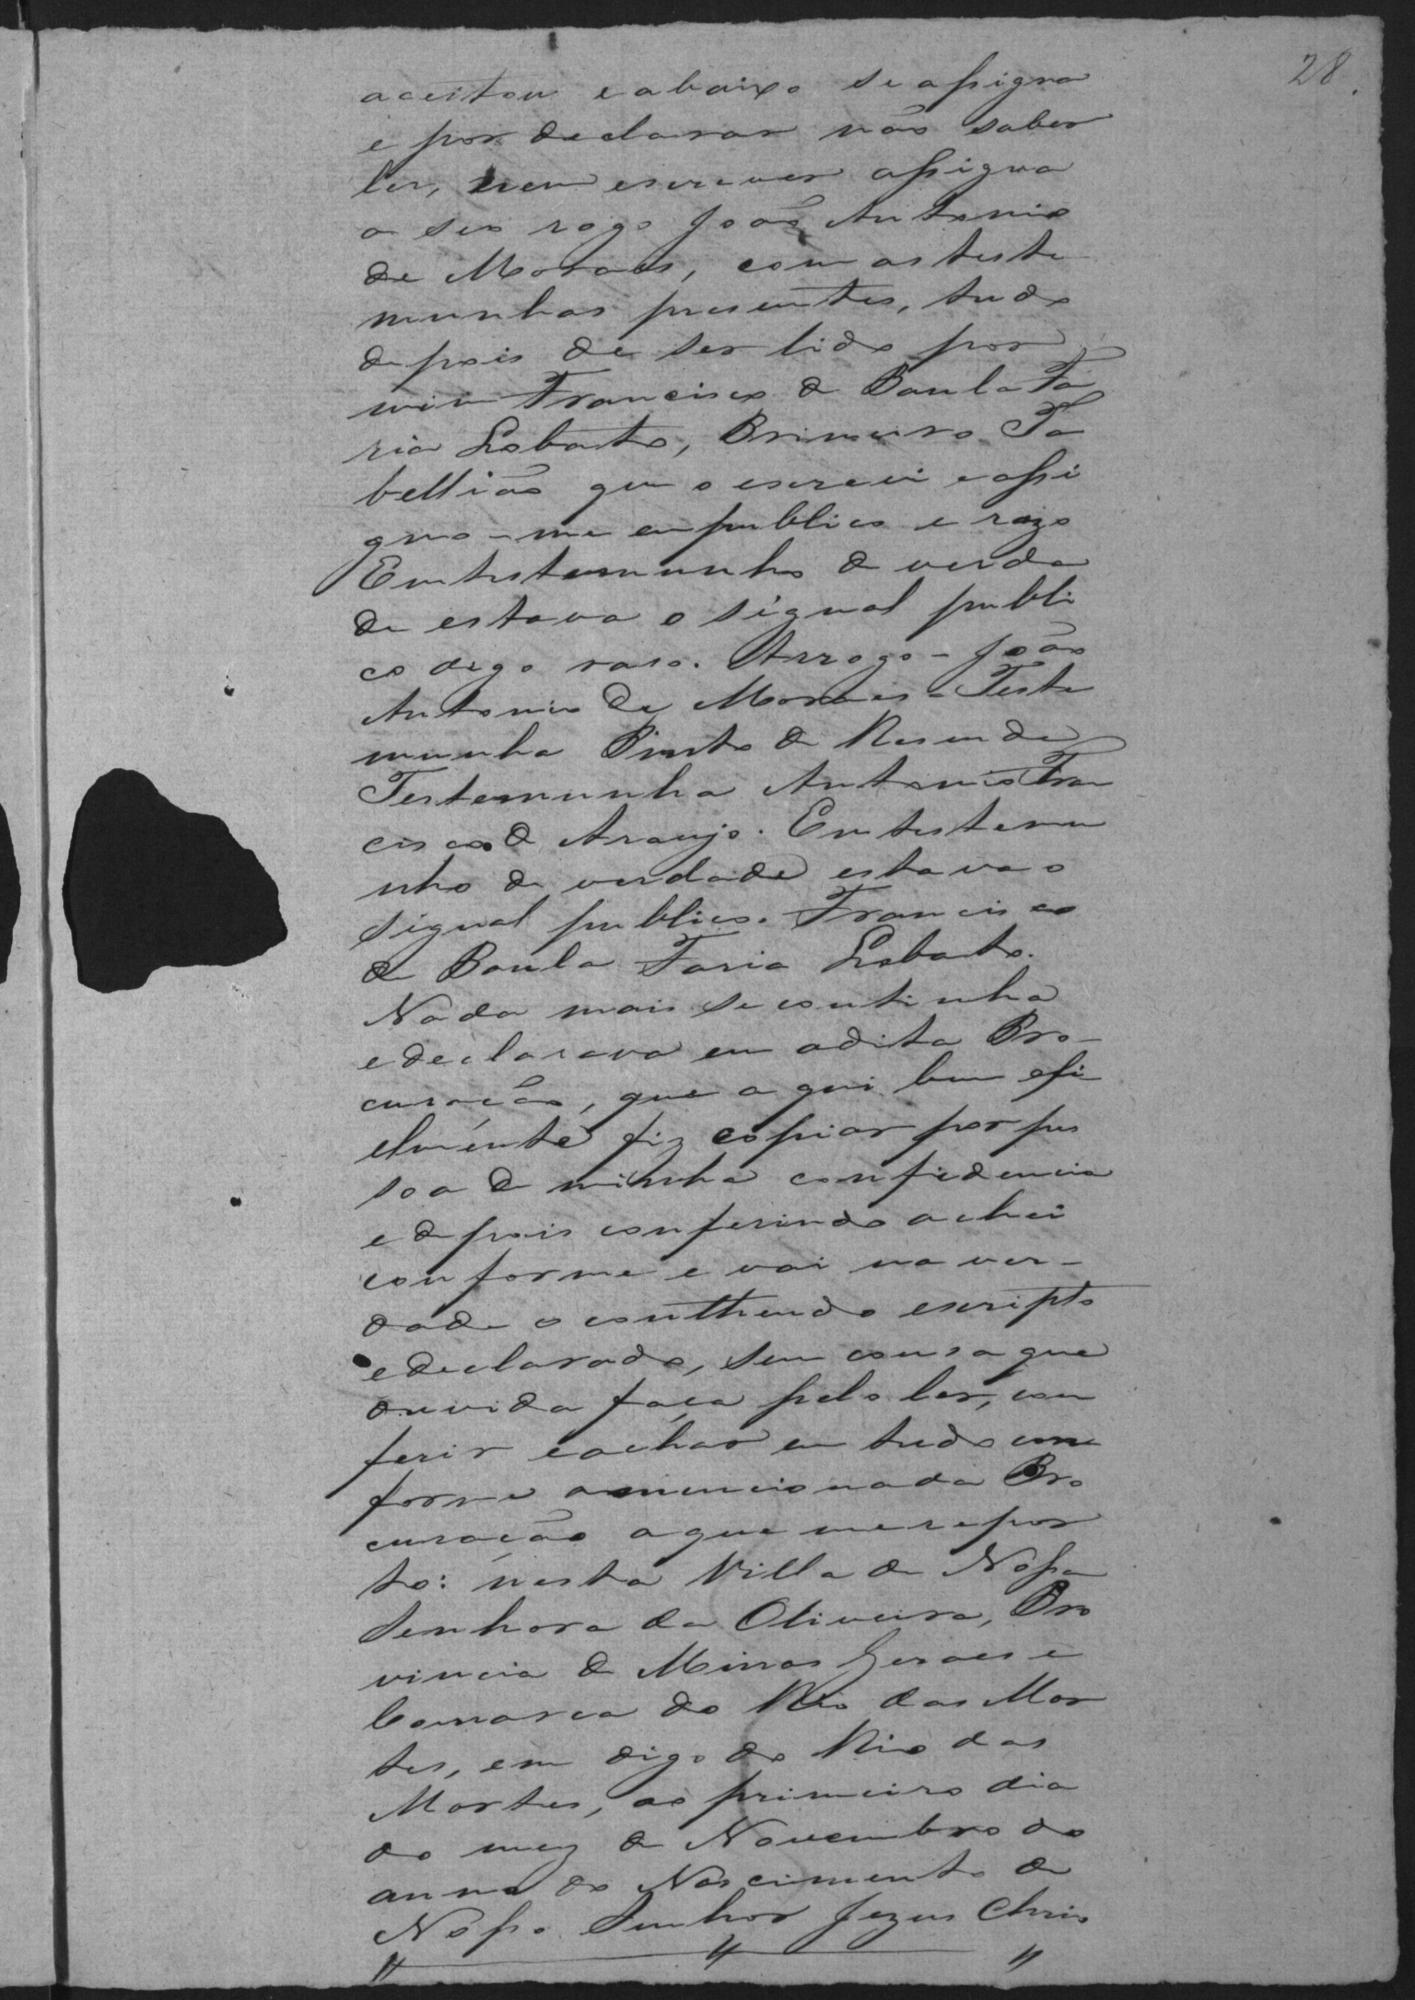 28.
aceitou e abaixo se assigna
e por declarar não saber
ler, nem escrever assigna
a seu rogo João Antonio
de Moraes, com as teste
munhas presentes, tudo
depois de ser lido por
mim Francisco de Paula Fa
ria Lobato, Primeiro Ta
bellião que o escrevi e assi
gno-me em publico e razo
Em testemunho da verda
de estava o signal publi
co digo raso. Arrogo - João
Antonio de Moraes - Teste
munha Pinto de Resende
Testemunha Antonio Fran
cisco de Araujo. Em testemu
nho da verdade estava o
signal publico. Francisco
de Paula Faria Lobato.
Nada mais se continha
e declarava em a dita Pro-
curação, que aqui bem e fi
elmente fiz copiar por pes
soa de minha confidencia
e depois conferindo achei
conforme e vai na ver-
dade o conttheudo escripto
e declarado, sem cousa que
duvida faça pelo ler, con
ferir e achar em tudo con
forme a mencionada Pro
curação a que me repor
to: nesta Villa de Nossa
Senhora da Oliveira, Pro
vincia de Minas Geraes e
Comarca do Rio das Mor
tes, em digo do Rio das
Mortes, ao primeiro dia
do mez de Novembro do
anno do Nascimento de
Nosso Senhor Jezus Chris
" " "